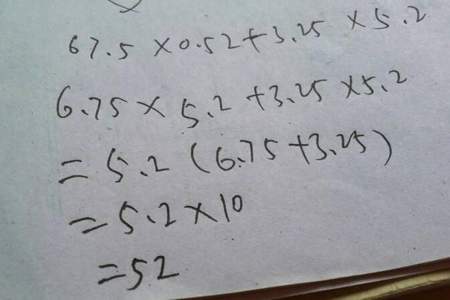 67.5×0.52+3.25×5.2
6.75×5.2+3.25×5.2
=5.2(6.75+3.25)
=5.2×10
=52